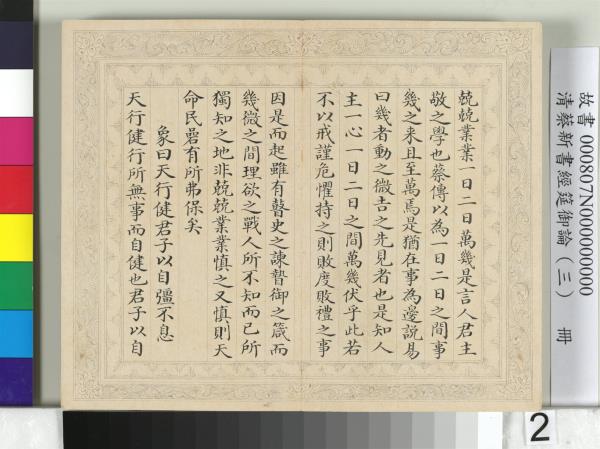 兢兢業業一日二日萬幾是言人君主
敬之學也蔡傳以為一日二日之間事
幾之来且至萬焉是猶在事為邊說易
曰幾者動之微吉之先見者也是知人
主一心一日二日之間萬幾伏乎此若
不以戒謹危懼持之則敗度敗禮之事
因是而起雖有瞽史之諫暬御之箴而
幾微之間理欲之戰人所不知而已所
獨知之地非兢兢業業慎之又慎則天
命民碞有所弗保矣
象曰天行健君子以自彊不息
天行健行所無事而自健也君子以自
故書 000807N000000000
清蔡新書經筵御論（三） 冊
2